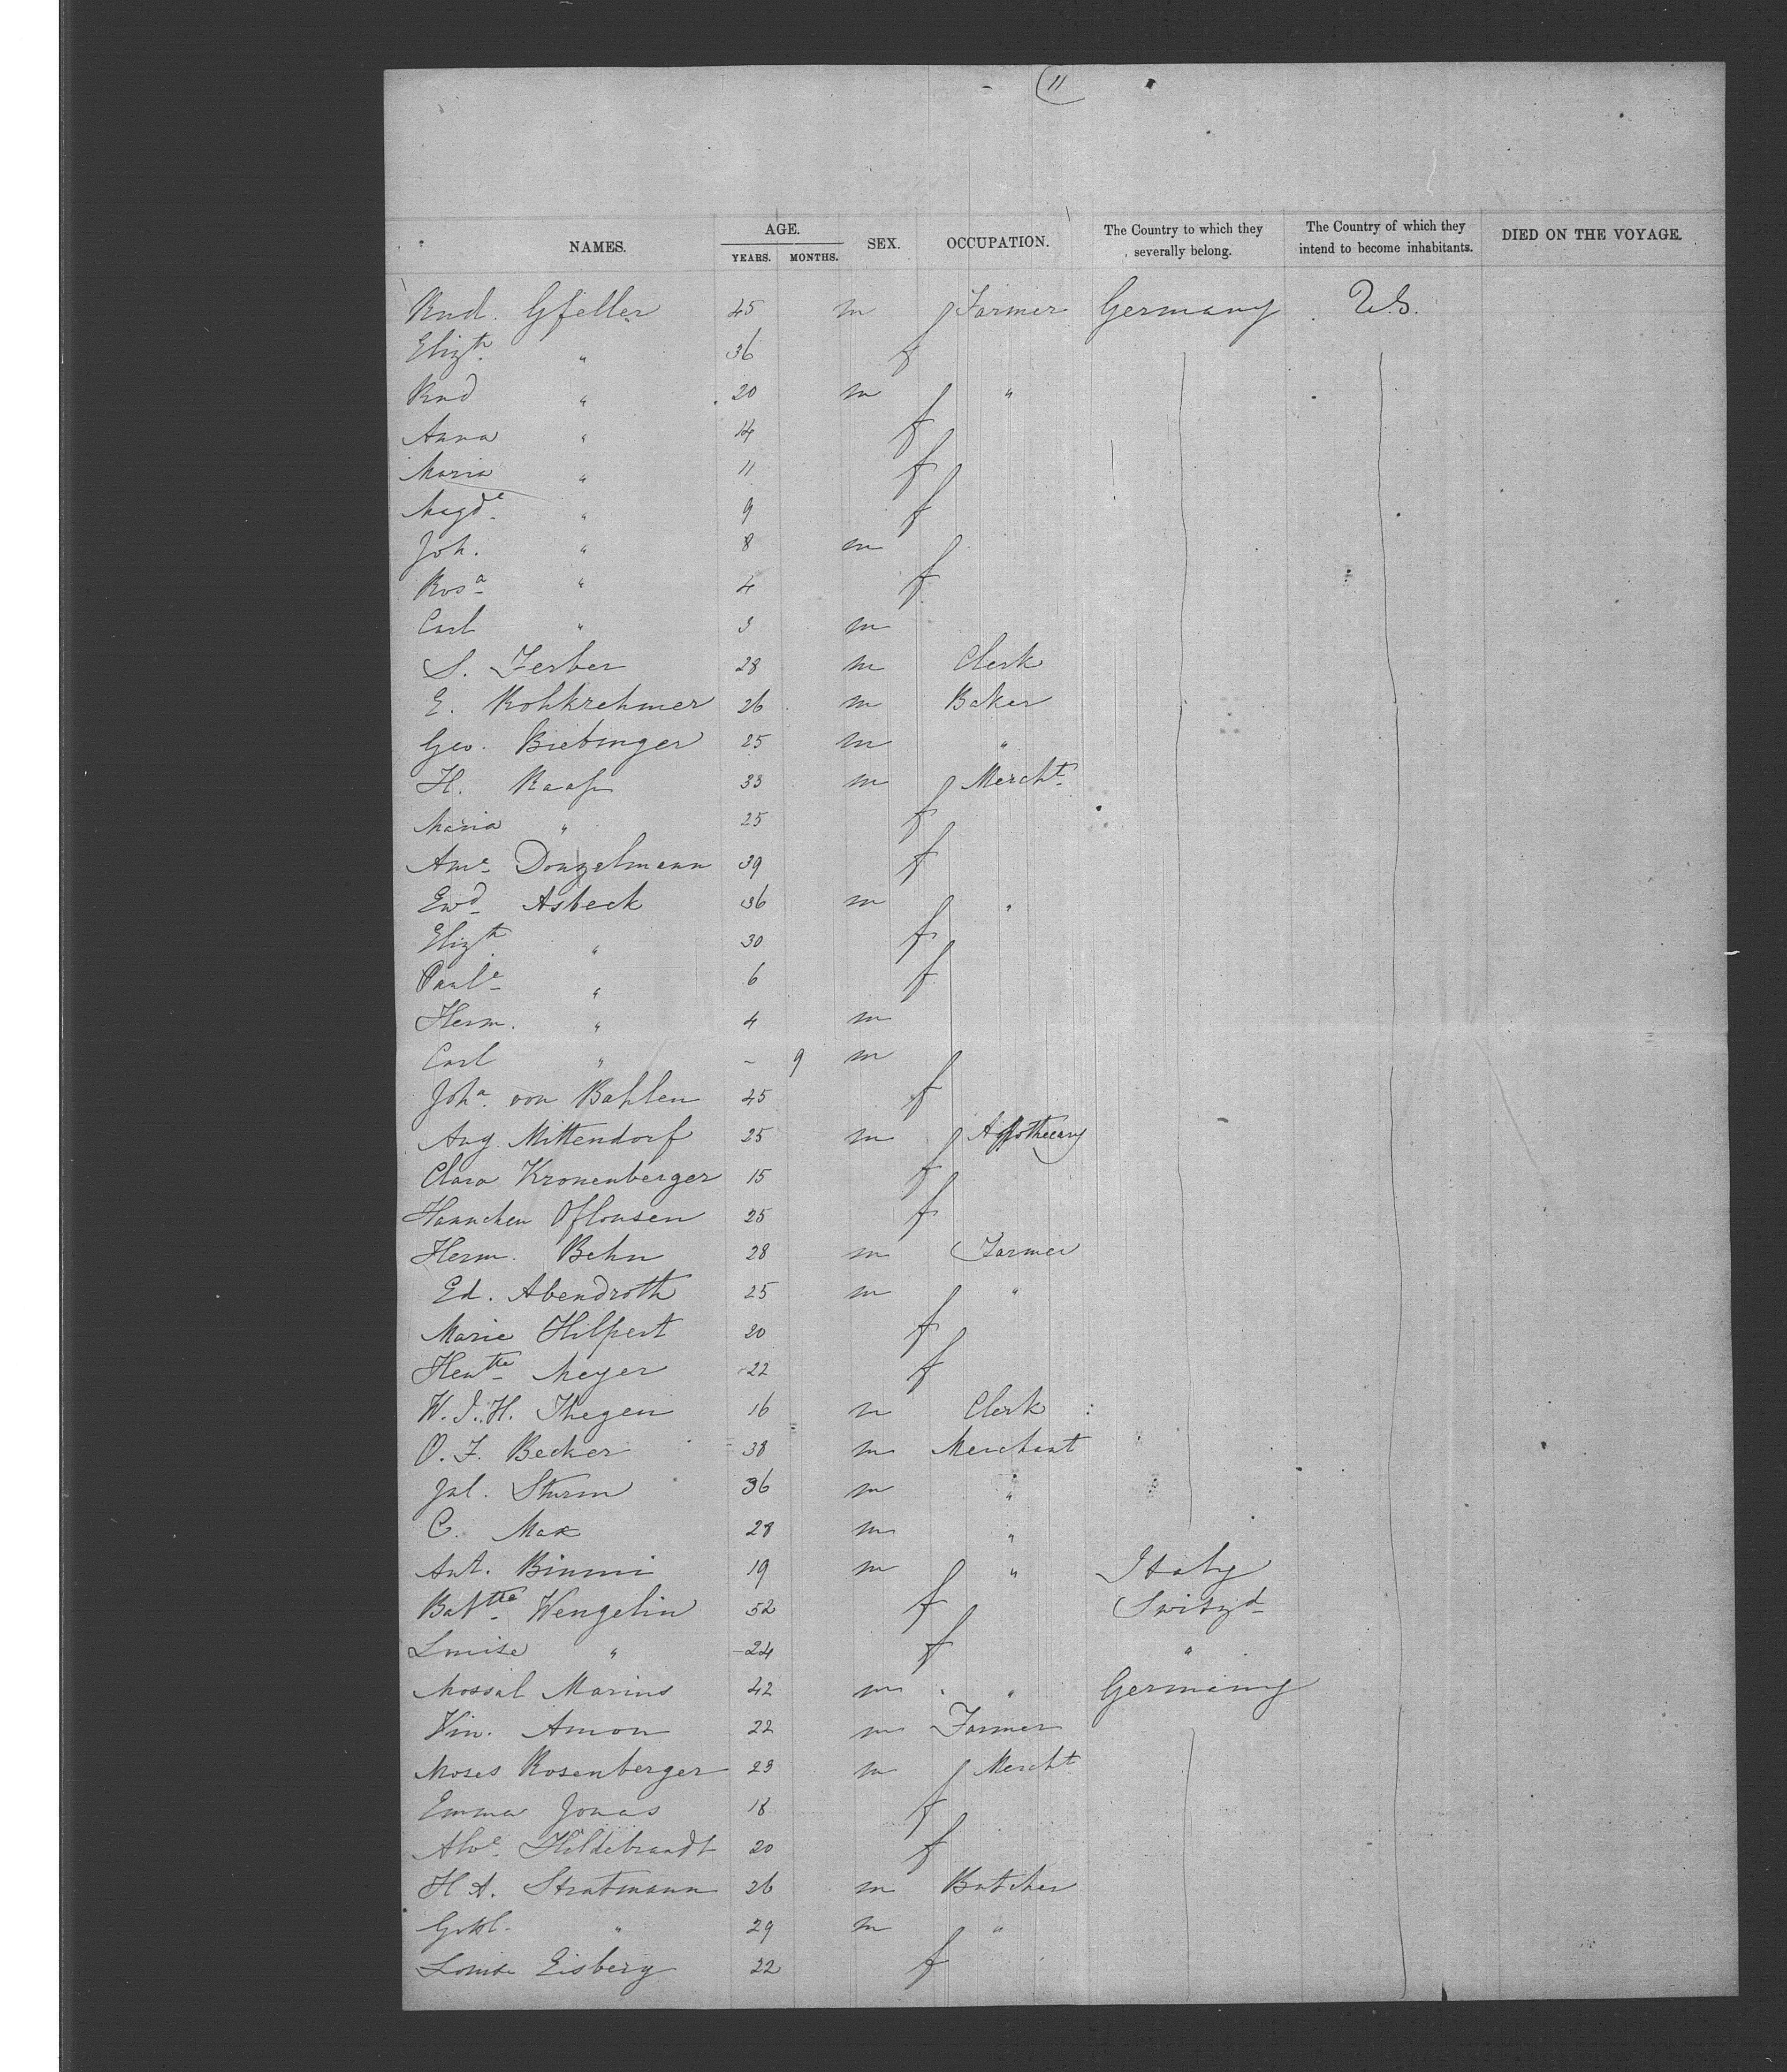 11
NAMES. AGE. YEARS. MONTHS. SEX. OCCUPATION. The Country to which they severally belong. The Country of which they intend to become inhabitants. DIED ON THE VOYAGE.
Rud. Gfeller 45 m Farmer Germany U.S.
Elizth " 36 f
Rud " 20 m "
Anna " 14 f
Maria " 11 f
Magde " 9 f
Joh. " 8 m
Rosa " 4 f
Carl " 3 m
S. Ferber 28 m Clerk
E. Rohkrehmer 26 m Baker
Geo. Biebinger 25 m "
H. Raap 33 m Mercht
Maria " 25 f
Ame Donzelmann 39 f
Ewd Asbeck 36 m "
Elizth " 30 f
Paule " 6 f
Herm. " 4 m
Carl " - 9 m
Joha von Bahlen 45 f
Aug Mittendorf 25 m Apothecary
Clara Kronenberger 15 f
Hannchen Oflonsen 25 f
Herm. Behn 28 m Farmer
Ed. Abendroth 25 m "
Marie Hilpert 20 f
Hentte Meyer 22 f
W. J. H. Thegen 16 m Clerk
O. F. Becker 38 m Merchant
Jul. Sturm 36 m "
C. Max 28 m "
Ant. Binmi 19 m " Italy
Babtte Wengelin 52 f Switzd
Louise " 24 f "
Mossal Marius 42 m " Germany
Vin. Amon 22 m Farmer
Moses Rosenberger 23 m Mercht
Emma Jonas 18 f
Alve Hildebrandt 20 f
H A. Stratmann 26 m Butcher
Gottl. " 29 m "
Louise Eisberg 22 f